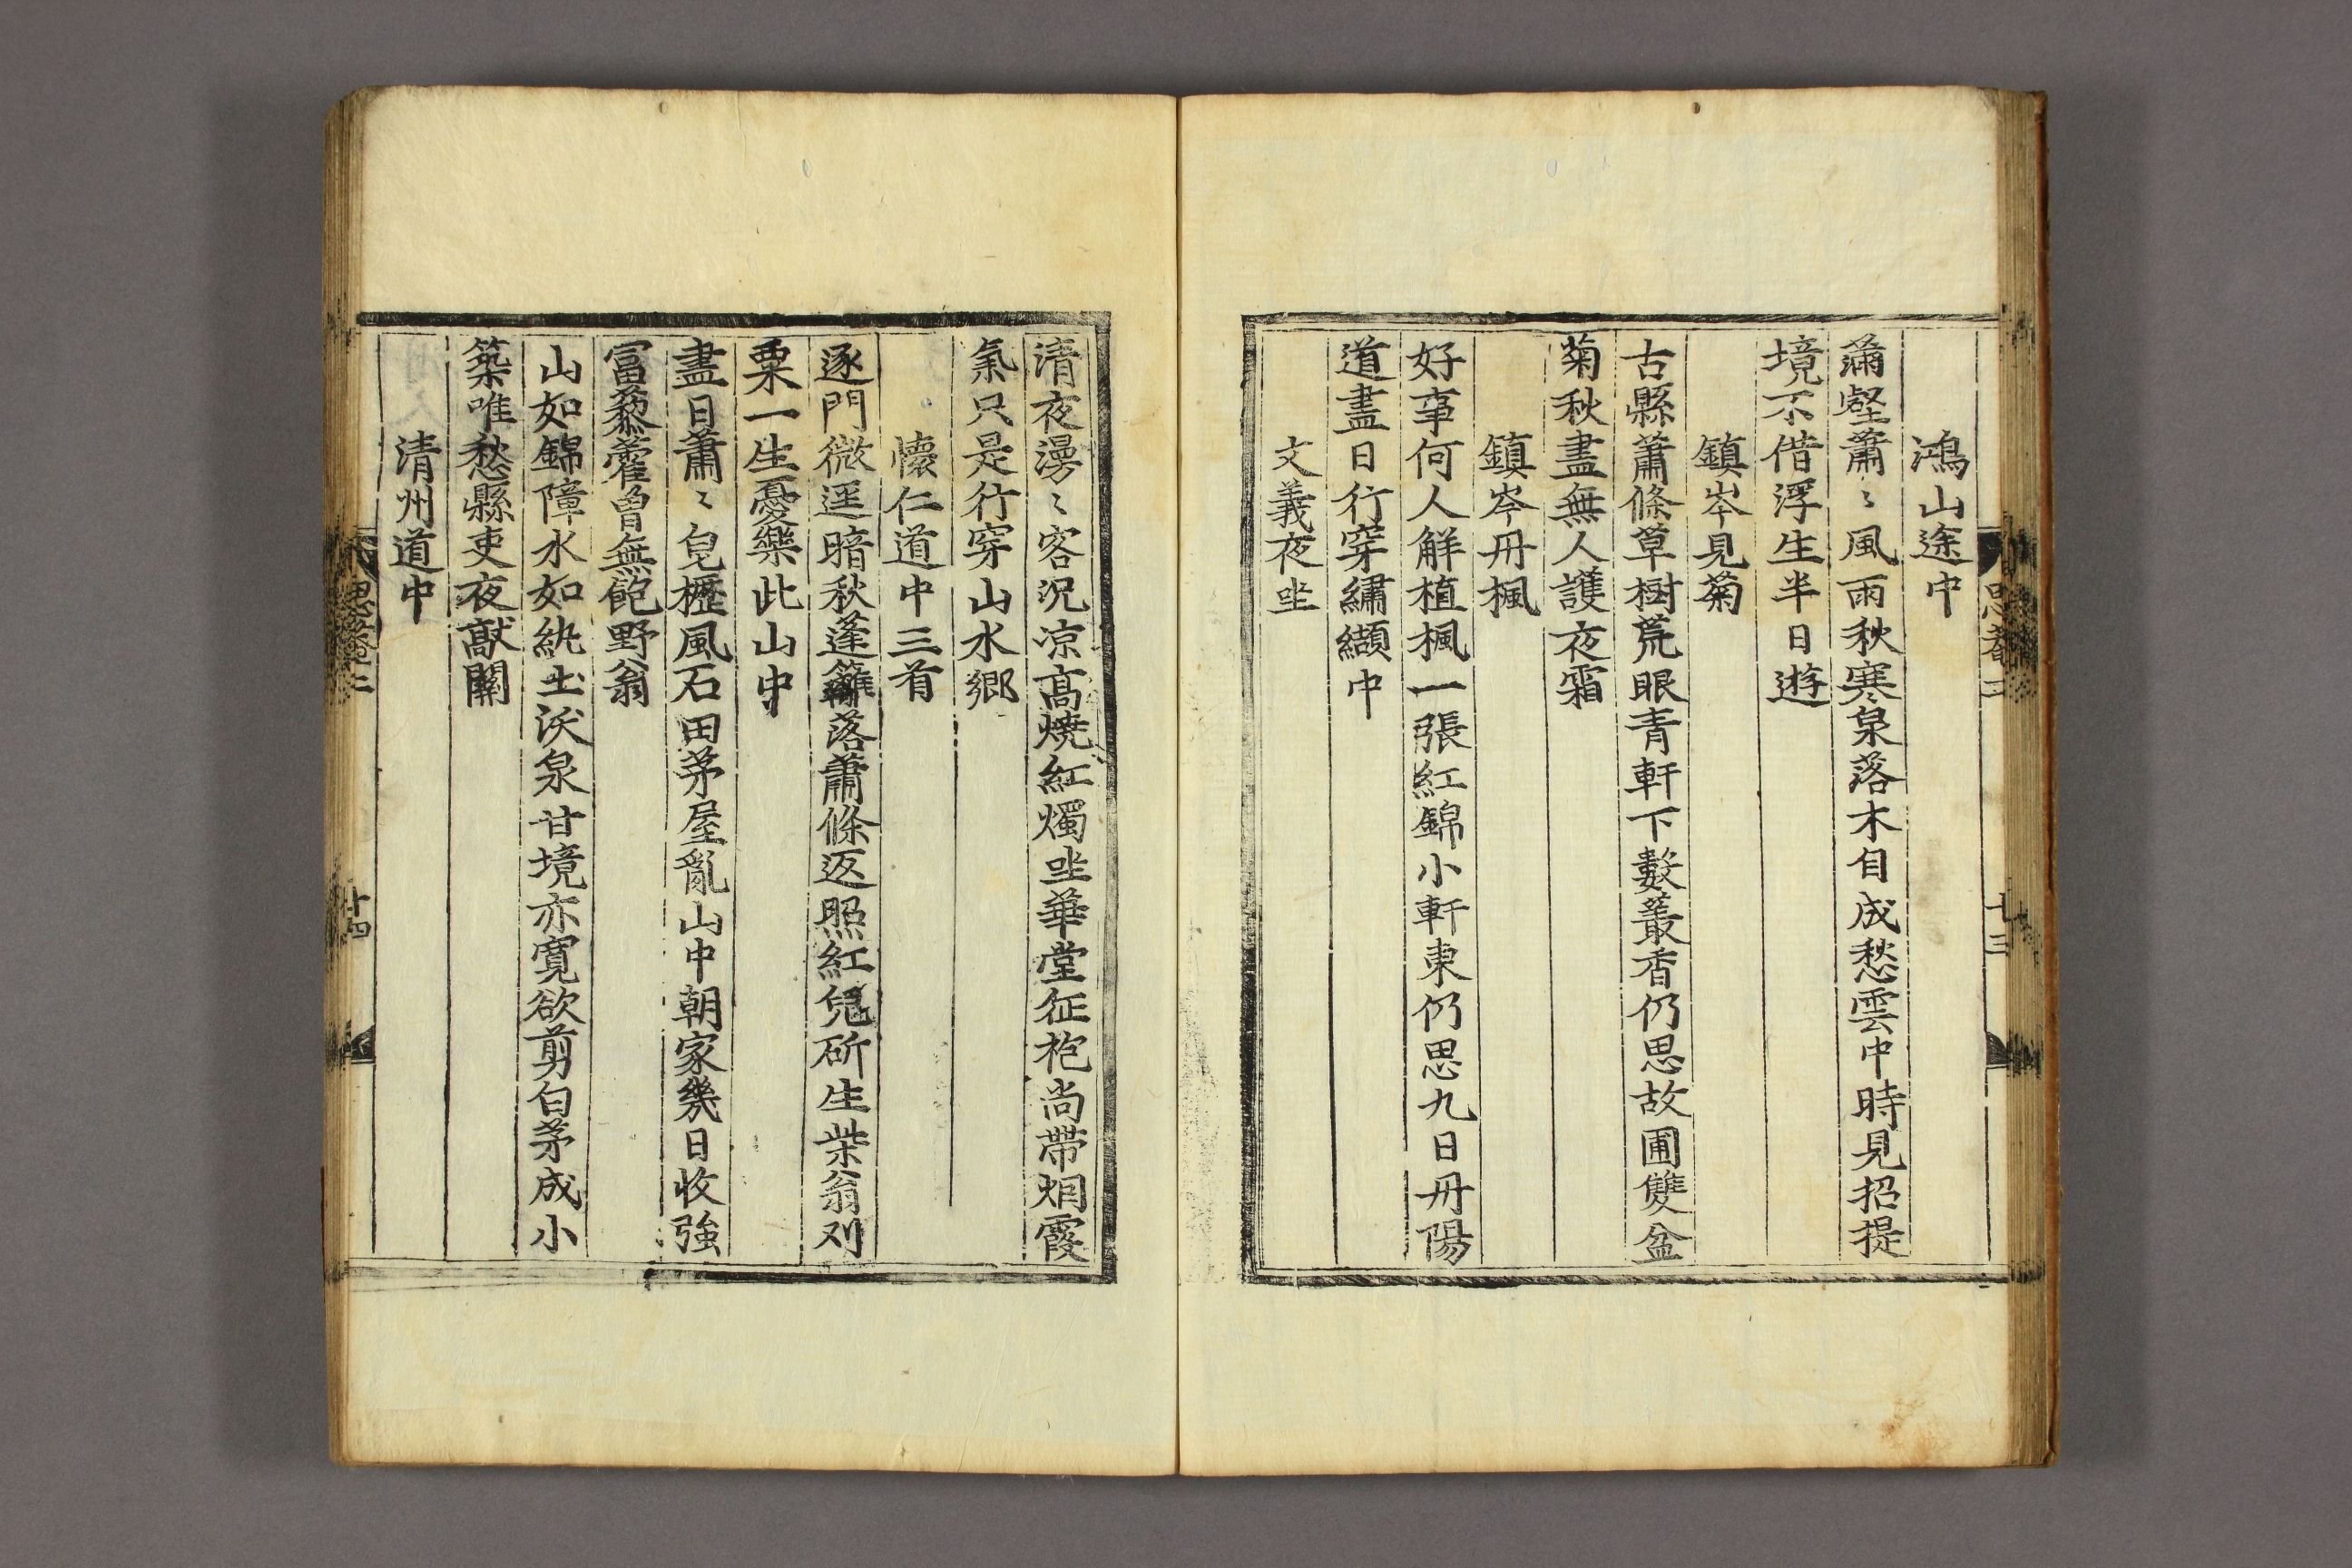 鴻山途中
滿壑蕭〻風雨秋寒泉落木自成愁雲中時見招提
境不借浮生半日遊
鎮岑見菊
古縣蕭條草樹荒眼青軒下數叢香仍思故圃雙盆
菊秋盡無人護夜霜
鎮岑丹楓
好事何人解植楓一張紅錦小軒東仍思九日丹陽
道盡日行穿繡纈中
文義夜坐
清夜漫〻客況凉高燒紅燭坐華堂征袍尚帶烟霞
氣只是行穿山水鄉
懷仁道中三首
逐門微逕暗秋蓬籬落蕭條返照紅兒斫生柴翁刈
粟一生憂樂此山中
盡日蕭〻皂櫪風石田茅屋亂山中朝家幾日收強
富藜藿曾無飽野翁
山如錦障水如紈土沃泉甘境亦寬欲剪白茅成小
築唯愁縣吏夜敲關
清州道中
思菴二
十三
十四